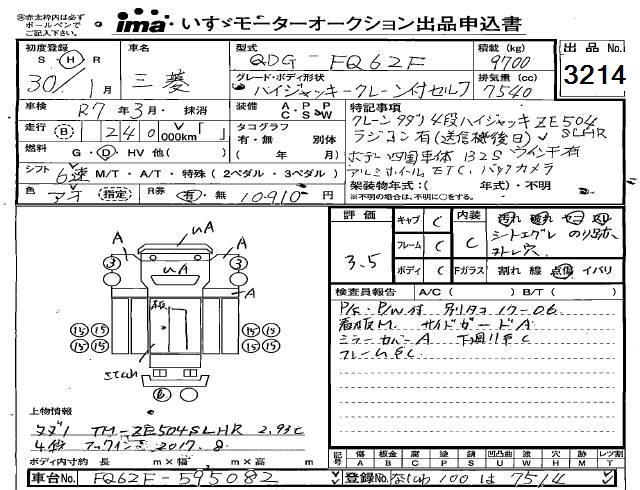 ※赤太枠内は必ずボールペンでご記入下さい。
ima いすゞモーターオークション出品申込書
初度登録 S・H・R 30年 1月
車名 三菱
型式 QDG-FQ62F
積載(kg) 9700
出品No. 3214
グレード・ボディ形状 ハイジャッキークレーン付セルフ
排気量(cc) 7540
車検 R7年3月・抹消
装備 A・P・P C S W
特記事項
走行 (B) 240 000km
タコグラフ 有・無 別体( 年 月)
クレーン タダノ4段ハイジャッキZE504
ラジコン有(送信機後日) SLHR
燃料 G・D・HV 他( )
ボデー四国車体 132S ウインチ有
シフト 6速 M/T・A/T・特殊(2ペダル・3ペダル)
アルミホイール ETC. バックカメラ
色 アオ (指定)
R券 有・無 10910円
架装物年式:( 年式)・不明
※不明の場合は、不明に○をする。
評価 3.5
キャブ C
フレーム C
ボディ C
内装 C
汚れ 破れ
シートエグレ のり跡
ネトレ穴
Fガラス 割れ 線 点傷 イバリ
検査員報告 A/C( ) B/T( )
P/S・P/W付 別タコ 17-06
看板M サイドガードA
ミラーカバーA 下回り車C
A uA A
3 uA 3
A
15 15 15 15
15 15 15 15
上物情報
タダノ TM-ZE504SLHR 2.93t
4段 フックイン 2017.8
ボディ内寸約 長 m×幅 m×高 m
記号 傷 A 板金 B 腐 C 塗 P 錆 S 凹凸曲 U 波 W 穴 H 跡 M レツ割 T
車台No. FQ62F-595082
登録No. なにわ 100 は 7514